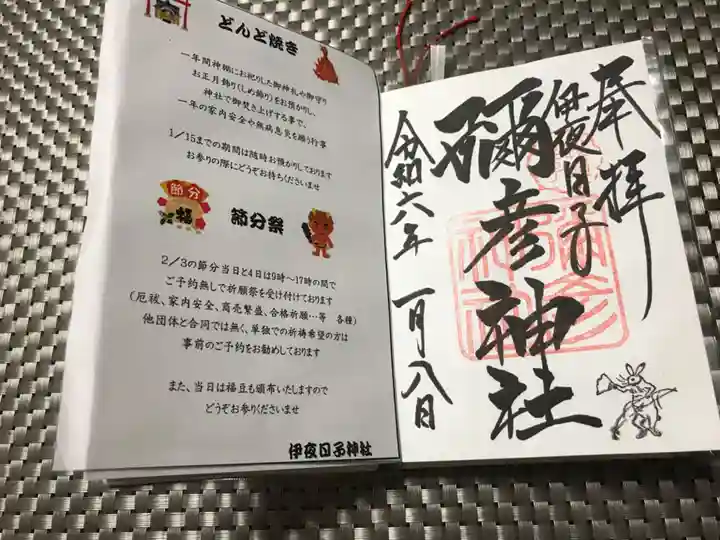 どんど焼き
一年間神棚にお祀りした御神札や御守り
お正月飾り(しめ飾り)をお預かりし、
神社で御焚き上げする事で、
一年の家内安全や無病息災を願う行事
1/15までの期間は随時お預かりしております
お参りの際にどうぞお持ちくださいませ
節分
福
節分祭
2/3の節分当日と4日は9時~17時の間で
ご予約無しで祈願祭を受け付けております
(厄祓、家内安全、商売繁盛、合格祈願…等 各種)
他団体と合同では無く、単独での祈祷希望の方は
事前のご予約をお勧めしております
また、当日は福豆も頒布いたしますので
どうぞお参りくださいませ
伊夜日子神社
奉拝
伊夜日子
彌彦神社
令和六年 一月八日